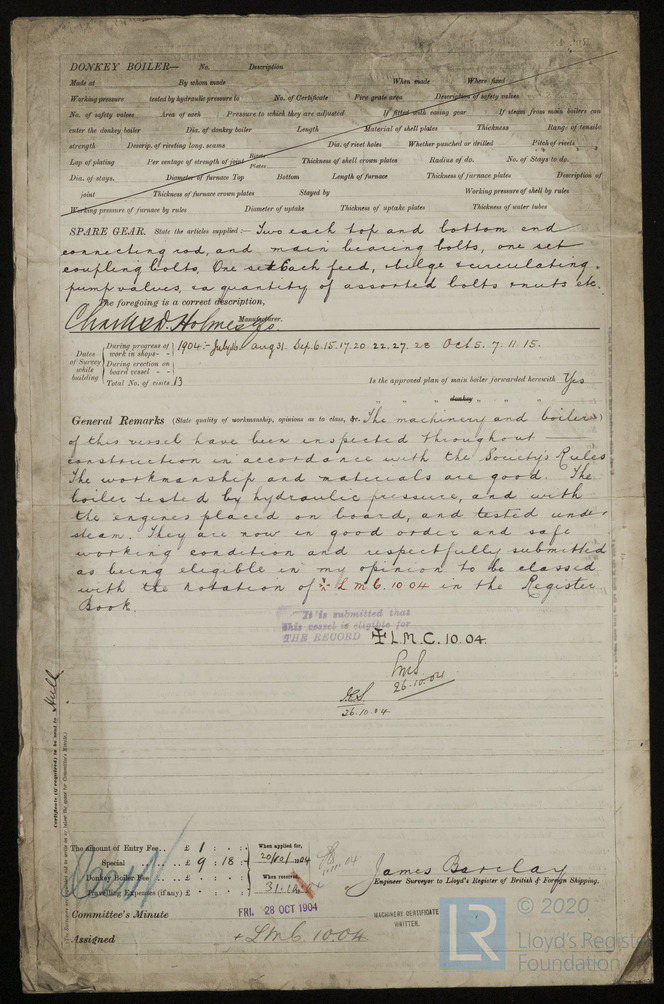 DONKEY BOILER— No. Description
Made at By whom made When made Where fixed
Working pressure tested by hydraulic pressure to No. of Certificate Fire grate area Description of safety valves
No. of safety valves Area of each Pressure to which they are adjusted If fitted with easing gear If steam from main boilers can
enter the donkey boiler Dia. of donkey boiler Length Material of shell plates Thickness Range of tensile
strength Descrip. of riveting long. seams Dia. of rivet holes Whether punched or drilled Pitch of rivets
Lap of plating Per centage of strength of joint Rivets Plates Thickness of shell crown plates Radius of do. No. of Stays to do.
Dia. of stays. Diameter of furnace Top Bottom Length of furnace Thickness of furnace plates Description of
joint Thickness of furnace crown plates Stayed by Working pressure of shell by rules
Working pressure of furnace by rules Diameter of uptake Thickness of uptake plates Thickness of water tubes
SPARE GEAR. State the articles supplied:— Two each top and bottom end
connecting rod, and main bearing bolts, one set
coupling bolts, One set each feed, bilge & circulating
pump valves, & a quantity of assorted bolts & nuts etc.
The foregoing is a correct description,
Charles D. Holmes & Co. Manufacturer.
Dates of Survey while building
During progress of work in shops - - 1904:- July 16. Aug 31. Sep. 6. 15. 17. 20. 22. 27. 28 Oct 5. 7. 11. 15.
During erection on board vessel - -
Total No. of visits 13
Is the approved plan of main boiler forwarded herewith Yes
" " " donkey " " "
General Remarks (State quality of workmanship, opinions as to class, &c. The machinery and boiler
of this vessel have been inspected throughout
construction in accordance with the Society's Rules
The workmanship and materials are good. The
boiler tested by hydraulic pressure, and with
the engines placed on board, and tested under
steam. They are now in good order and safe
working condition and respectfully submitted
as being eligible in my opinion to be classed
with the notation of ✠ L M C. 10 04 in the Register
Book.
It is submitted that
this vessel is eligible for
THE RECORD ✠ L.M.C. 10.04.
26.10.04
26.10.04
Certificate (if required) to be sent to Hull
The amount of Entry Fee.. £ 1 : :
Special .. .. £ 9 : 18 :
Donkey Boiler Fee .. .. £ : :
Travelling Expenses (if any) £ : :
When applied for,
20/10/1904
When received,
31.10.04
James Barclay
Engineer Surveyor to Lloyd's Register of British & Foreign Shipping.
Committee's Minute FRI. 28 OCT 1904
MACHINERY CERTIFICATE
WRITTEN.
Assigned + L M C 10.04
LR
© 2020
Lloyd's Register
Foundation